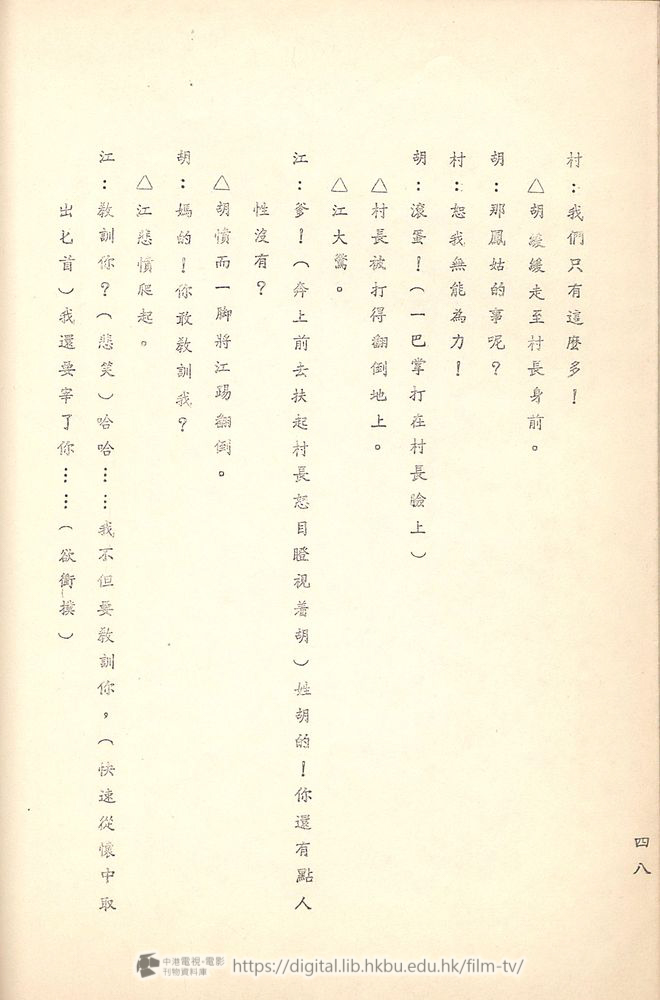 村：我們只有這麼多！
△胡緩緩走至村長身前。
胡：那鳳姑的事呢？
村：恕我無能為力！
胡：滾蛋！（一巴掌打在村長臉上）
△村長被打得翻倒地上。
△江大驚。
江：爹！（奔上前去扶起村長怒目瞪視着胡）姓胡的！你還有點人
性沒有？
△胡憤而一脚將江踢翻倒。
胡：媽的！你敢教訓我？
△江悲憤爬起。
江：教訓你？（悲笑）哈哈……我不但要教訓你，（快速從懷中取
出匕首）我還要宰了你……（欲衝撲）
四八
中港電視・電影
刊物資料庫
https://digital.lib.hkbu.edu.hk/film-tv/